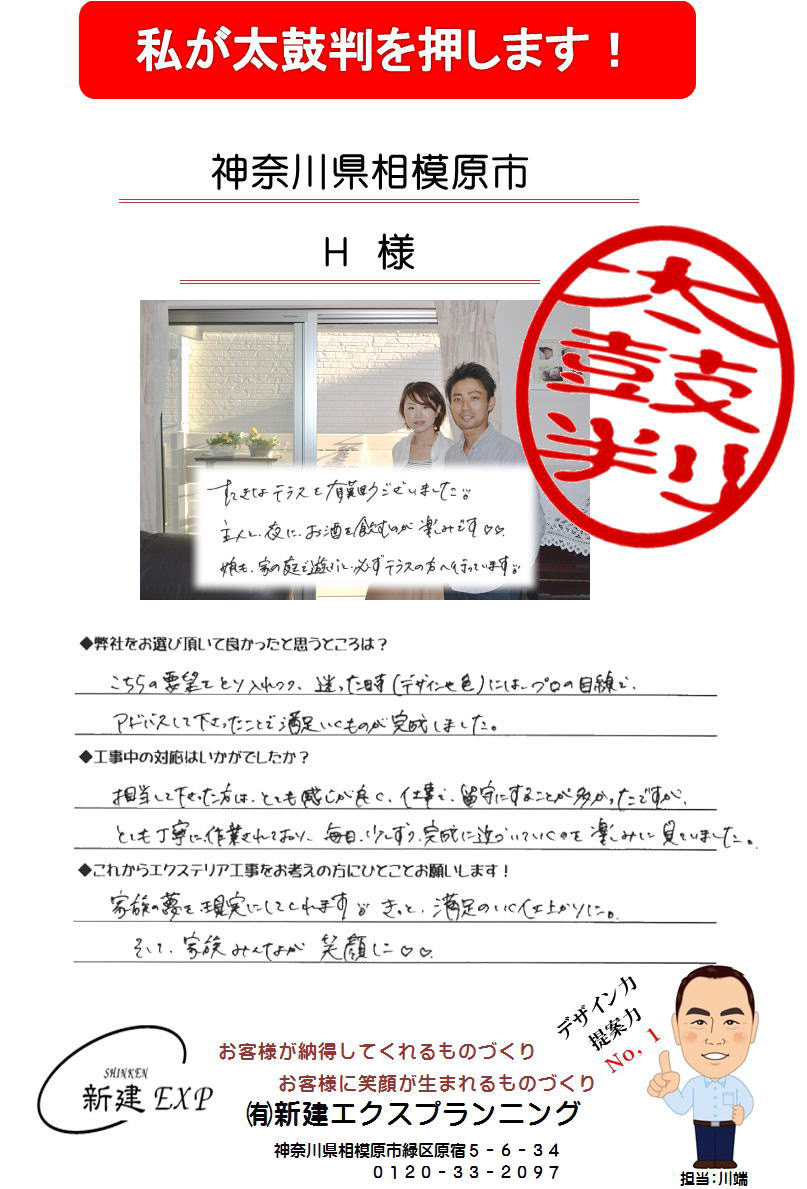 私が太鼓判を押します！
神奈川県相模原市
H 様
太鼓判
すてきなテラスを有難うございました。
主人と、夜に、お酒を飲むのが楽しみです♡♡
娘も、家の庭で遊ぶと、必ずテラスの方へ行っています。
◆弊社をお選び頂いて良かったと思うところは？
こちらの要望をとり入れつつ、迷った時(デザインや色)には、プロの目線で、
アドバイスして下さったことで満足いくものが完成しました。
◆工事中の対応はいかがでしたか？
担当して下さった方は、とても感じが良く、仕事で、留守にすることが多かったですが、
とても丁寧に作業されており、毎日、少しずつ、完成に近づいていくのを楽しみに見ていました。
◆これからエクステリア工事をお考えの方にひとことお願いします！
家族の夢を現実にしてくれます。きっと、満足のいく仕上がりに。
そして、家族みんなが笑顔に♡♡
デザイン力
提案力
No，1
SHINKEN
新建 EXP
お客様が納得してくれるものづくり
お客様に笑顔が生まれるものづくり
㈲新建エクスプランニング
神奈川県相模原市緑区原宿５－６－３４
０１２０－３３－２０９７
担当：川端